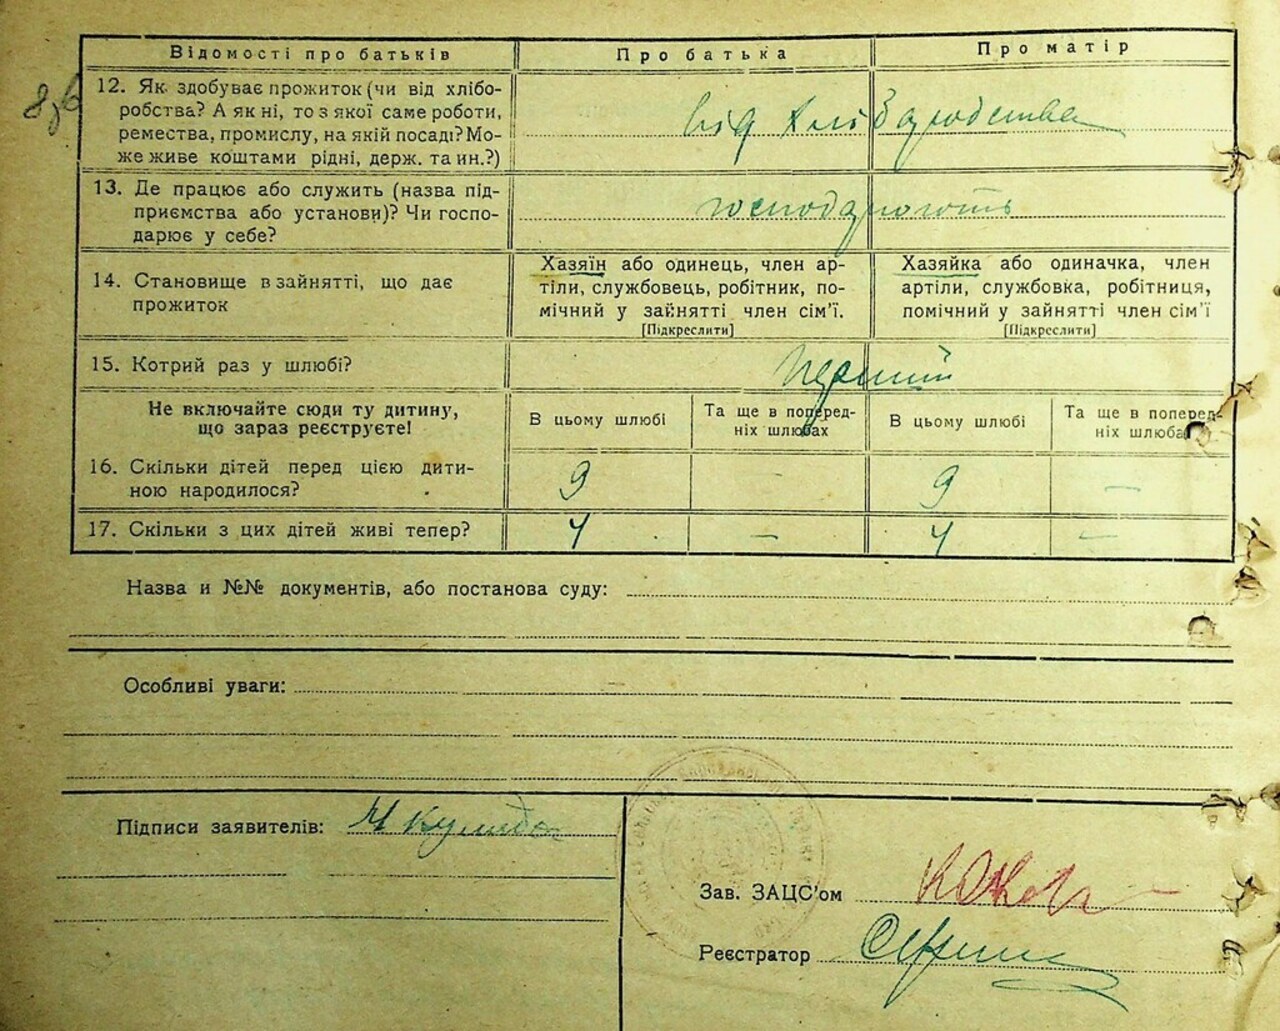 Відомості про батьків
Про батька
Про матір
12. Як здобуває прожиток (чи від хлібо-
робства? А як ні, то з якої саме роботи,
ремества, промислу, на якій посаді? Мо-
же живе коштами рідні, держ. та ин.?)
від хліборобства
13. Де працює або служить (назва під-
приємства або установи)? Чи госпо-
дарює у себе?
господарюють
14. Становище в зайнятті, що дає
прожиток
Хазяїн або одинець, член ар-
тіли, службовець, робітник, по-
мічний у зайнятті член сім'ї.
[Підкреслити]
Хазяйка або одиначка, член
артіли, службовка, робітниця,
помічний у зайнятті член сім'ї
[Підкреслити]
15. Котрий раз у шлюбі?
перший
Не включайте сюди ту дитину,
що зараз реєструєте!
В цьому шлюбі
Та ще в поперед-
ніх шлюбах
В цьому шлюбі
Та ще в поперед-
ніх шлюбах
16. Скільки дітей перед цією дити-
ною народилося?
9 — 9 —
17. Скільки з цих дітей живі тепер?
4 — 4 —
Назва и №№ документів, або постанова суду:
Особливі уваги:
Підписи заявителів:
Зав. ЗАЦС'ом
Реєстратор